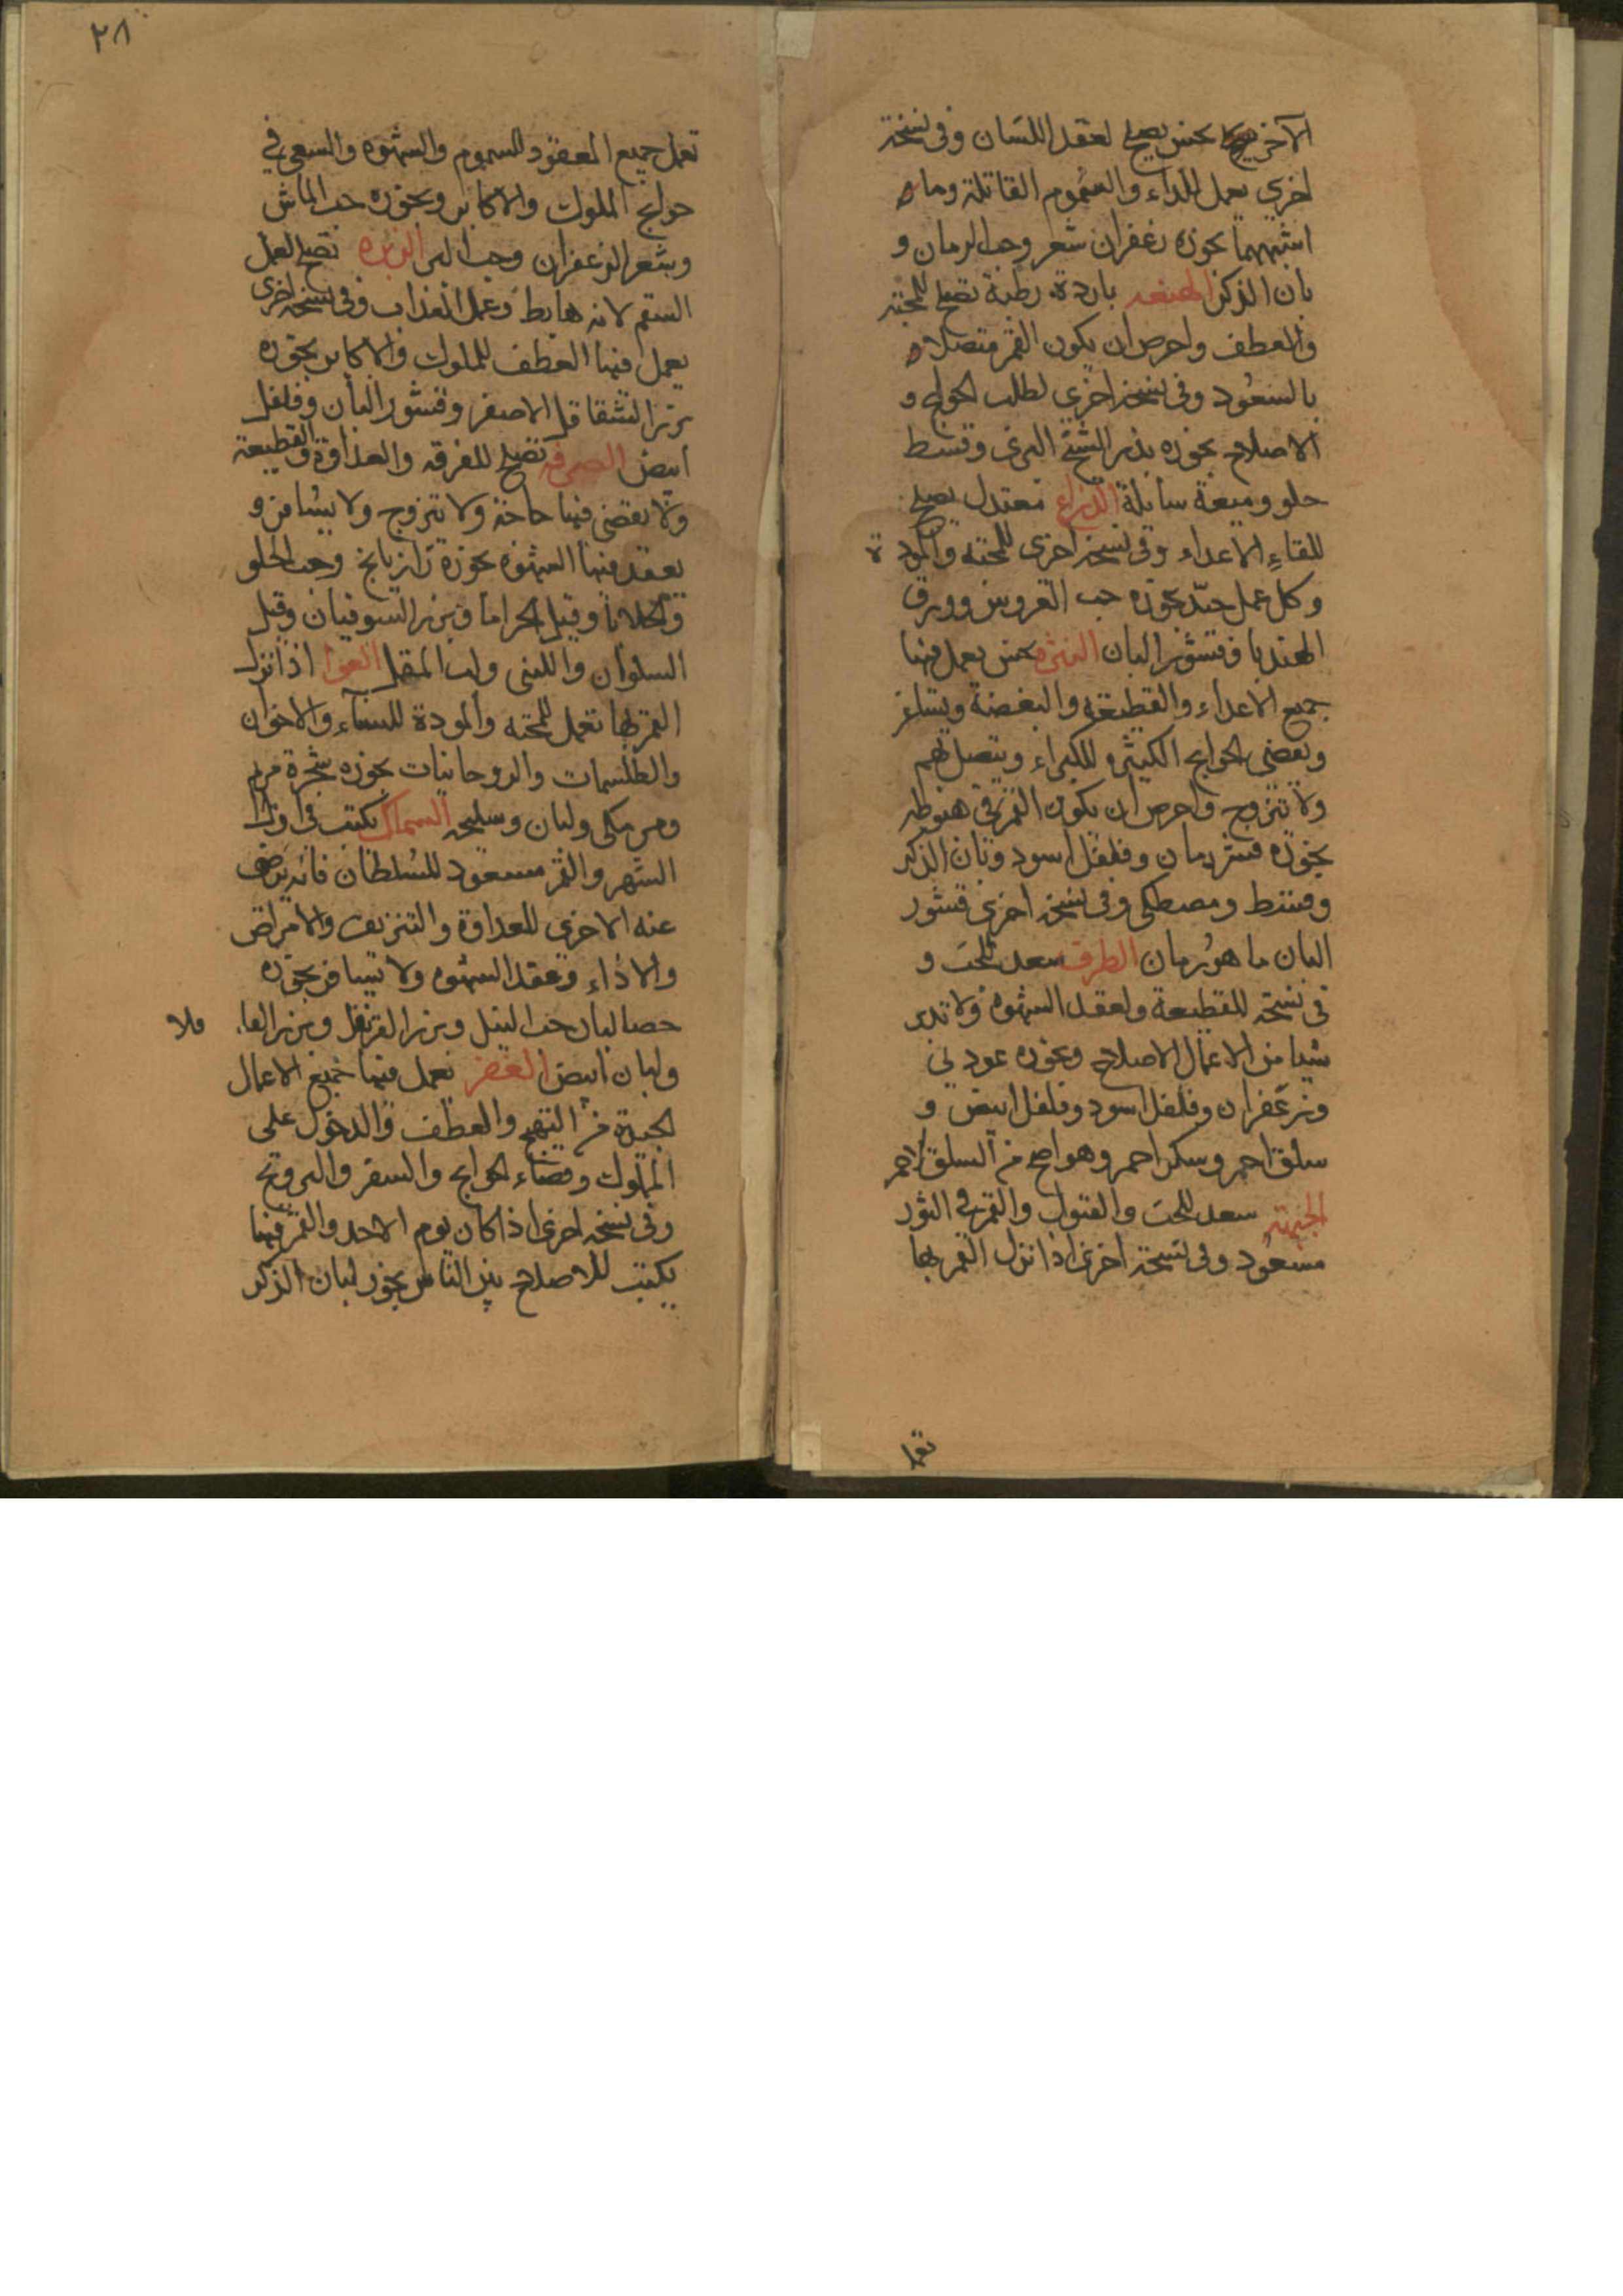 الآخر نحس يصلح لعقد اللسان وفى نسخة
اخرى يعمل للداء والسموم القاتلة وما
اشبههما بخوره زعفران شعر وحب الرمان و
بان الذكر الهنعه باردة رطبة تصلح للمحبته
والعطف واحرص ان يكون القمر متصلا
بالسعود وفى نسخة اخرى لطلب الحوايج و
الاصلاح بخوره بذر الشيح البرى وقسط
حلو وميعة سائلة الذراع معتدل يصلح
للقاء الاعداء وفى نسخة اخرى للمحبته والمودة
وكل عمل جيد بخوره حب العروس وورق
الهندبا وقشور البان النثره نحس يعمل فيها
جميع الاعداء والقطيعة والبغضة ويسافر
وتقضى الحوايج الكيثره للكبراء ويتصل بهم
ولا تتزوج واحرص ان يكون القمر فى هبوطه
بخوره قشر رمان وفلفل اسود وبان الذكر
ومصطكى وفى نسخه اخرى قشور
البان ما هو رمان الطرف سعد للحب و
فى نسخه للقطيعة ولعقد الشهوه ولا تدبر
شيا من الاعمال الاصلاح وبخوره عود نى
وزعفران وفلفل اسود وفلفل ابيض و
سلق احمر وسكر احمر وهو اصح من السلق الاحمر
الجبهته سعد للحب والقبول والقمر فى الثور
مسعود وفى نسخة اخرى اذا نزل القمر بها
تعمل
٢٨
تعمل جميع المعقود للسموم والشهوه والسعى فى
حوايج الملوك والاكابر وبخوره حب الماش
وشعر الزعفران وحب البر الزبره تصلح لعمل
السقم لانه هابط وعمل العذاب وفى نسخه اخرى
يعمل فيها العطف للملوك والاكابر بخوره
بزر الشقاقل الاصفر وقشور البان وفلفل
ابيض الصرفه تصلح للفرقه والعداوة والقطيعة
ولا يقضى فيها حاجة ولا تتزوج ولا يسافر و
يعقد فيها الشهوه بخوره رازيانج وحب الحلو
وقيل
السلوان واللبنى ولب المقل العوا اذا نزل
القمر بها تعمل للمحبته والمودة للنساء والاخوان
والطلسمات والروحانيات بخوره شجرة مريم
ومر مكى ولبان وسليخه السماك يكتب فى اول
الشهر والقمر مسعود للسلطان فانه يرضى
عنه الاخرى للعداوة والتنزيف والامراض
والاذاء وعقد الشهوه ولا تسافر بخوره
حصا لبان حب النيل وبزر القرنفل وبزر
ولبان ابيض الغفر تعمل فيها جميع الاعمال
الجيدة من التهيج والعطف والدخول على
الملوك وقضاء الحوايج والسفر والتزويج
وفى نسخه اخرى اذا كان يوم الاحد والقمر فيها
يكتب للاصلاح بين الناس بخور لبان الذكر